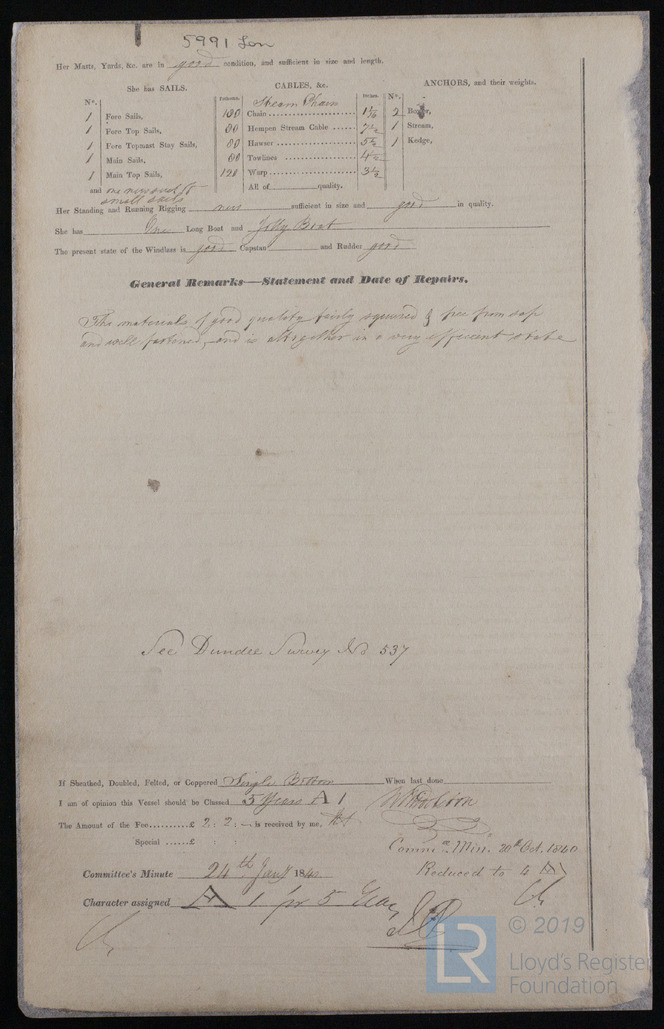 5991 Lon
Her Masts, Yards, &c. are in good condition, and sufficient in size and length.
She has SAILS.
CABLES, &c.
ANCHORS, and their weights.
No.
Fathoms.
Inches.
No.
Steam Chain
1 Fore Sails, 100 Chain 1 1/16 2 Bower,
1 Fore Top Sails, 80 Hempen Stream Cable 7 1/2 1 Stream,
1 Fore Topmast Stay Sails, 80 Hawser 5 1/2 1 Kedge,
1 Main Sails, 60 Towlines 4 1/2
1 Main Top Sails, 120 Warp 3 1/2
and one new suit of All of quality.
small sails
Her Standing and Running Rigging new sufficient in size and good in quality.
She has One Long Boat and Jolly Boat
The present state of the Windlass is good Capstan and Rudder good
General Remarks—Statement and Date of Repairs.
The materials of good quality fairly squared & free from sap
and well fastened, and is altogether in a very efficient state
See Dundee Survey No 537
If Sheathed, Doubled, Felted, or Coppered Single Bottom When last done
I am of opinion this Vessel should be Classed 5 Years A 1
The Amount of the Fee..........£ 2 : 2 : — is received by me,
Special ......£ : :
Commee Min. 20th Oct. 1840
Committee's Minute 24th Jany 184
Reduced to 4 A
Character assigned A 1 for 5 Years
© 2019
LR
Lloyd's Register
Foundation